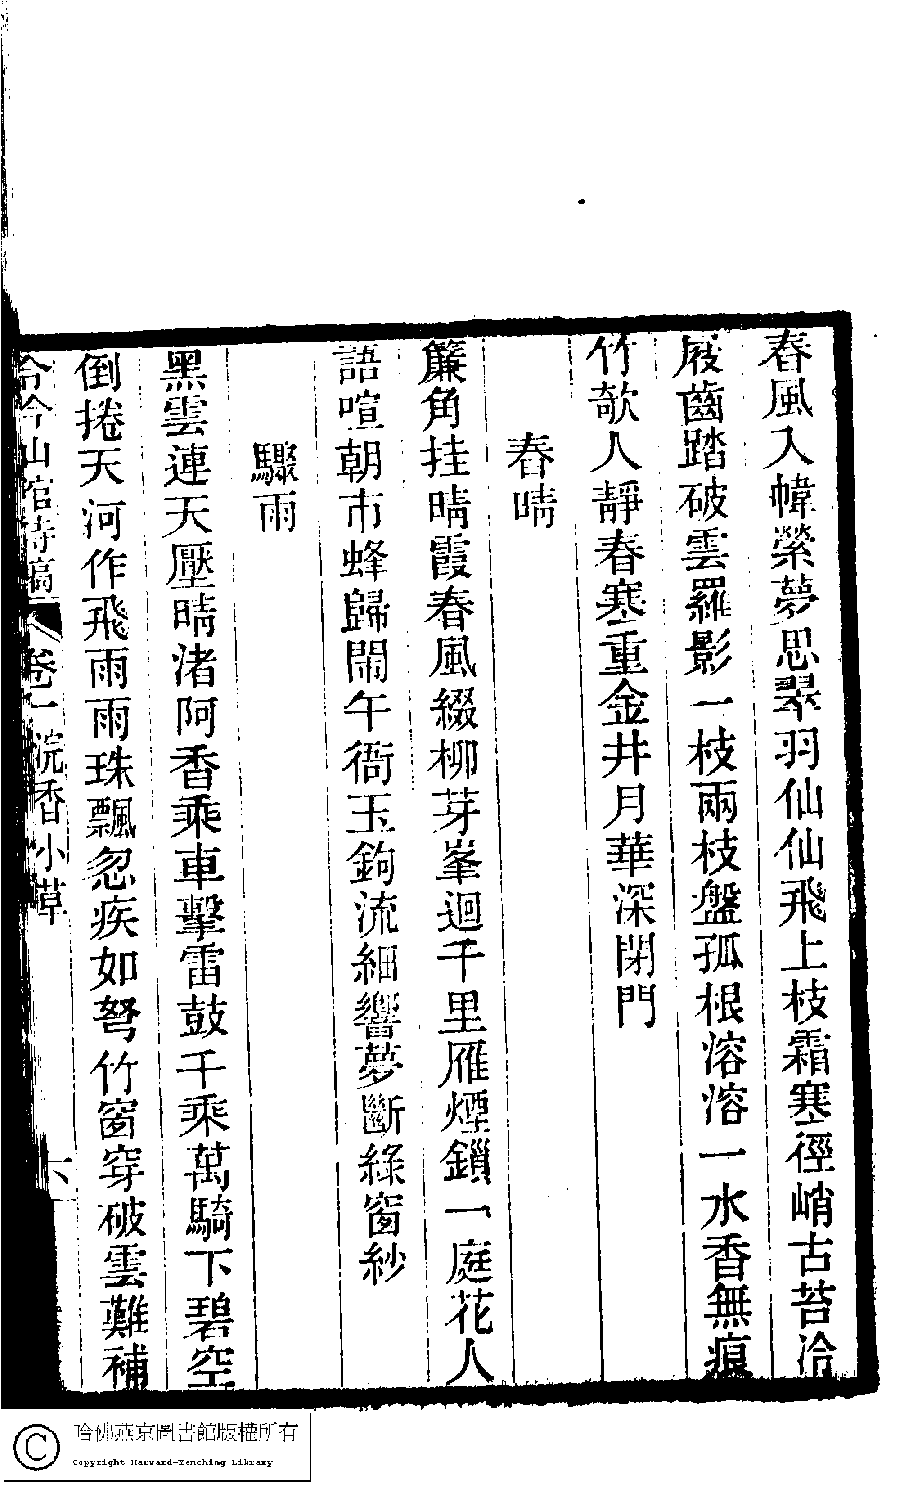 春風入幃縈夢思翠羽仙仙飛上枝霜寒徑峭古苔冷
屐齒踏破雲羅影一枝兩枝盤孤根溶溶一水香無痕
竹欹人靜春寒重金井月華深閉門
春晴
簾角挂晴霞春風綴柳芽峯迴千里雁煙鎖一庭花人
語喧朝市蜂歸鬧午衙玉鉤流細響夢斷綠窗紗
驟雨
黑雲連天壓晴渚阿香乘車擊雷鼓千乘萬騎下碧空
倒捲天河作飛雨雨珠飄忽疾如弩竹窗穿破雲難補
含山館詩稿 卷一 浣香小草 六
哈佛燕京圖書館版權所有
Copyright Harvard-Yenching Library